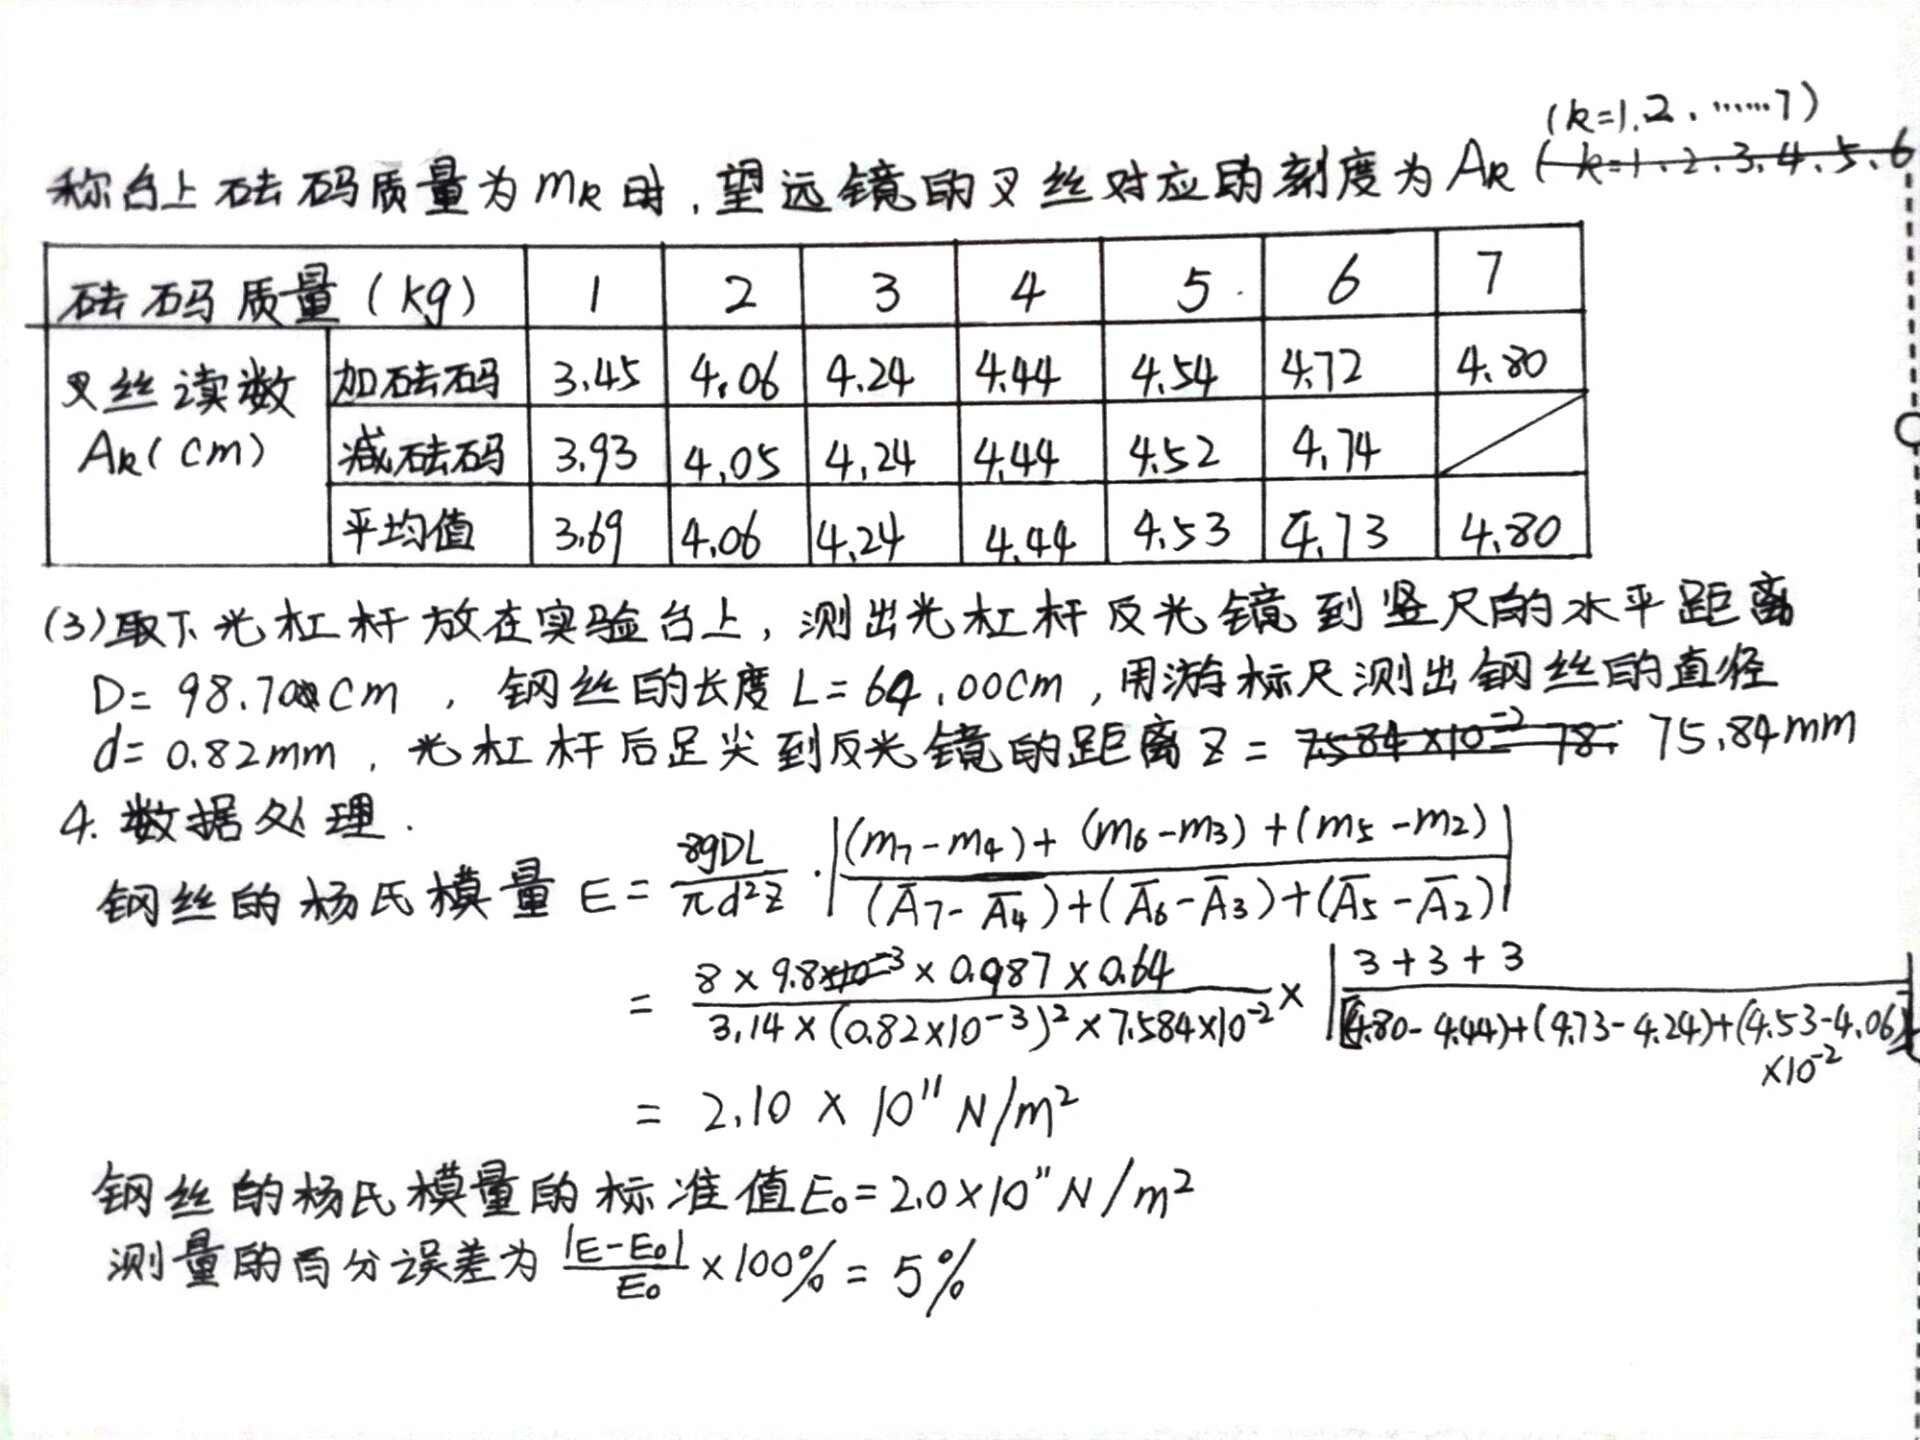 (k=1.2.……7)
称台上砝码质量为mk时,望远镜的叉丝对应的刻度为Ak (k=1.2.3.4.5.6
砝码质量(kg) 1 2 3 4 5 6 7
叉丝读数 Ak(cm) 加砝码 3.45 4.06 4.24 4.44 4.54 4.72 4.80
减砝码 3.93 4.05 4.24 4.44 4.52 4.74
平均值 3.69 4.06 4.24 4.44 4.53 4.73 4.80
(3)取下光杠杆放在实验台上,测出光杠杆反光镜到竖尺的水平距离
D=98.70cm,钢丝的长度L=64.00cm,用游标尺测出钢丝的直径
d=0.82mm,光杠杆后足尖到反光镜的距离Z= 7.584×10⁻² 78. 75.84mm
4.数据处理.
钢丝的杨氏模量E= 8gDL/πd²z · |(m₇-m₄)+(m₆-m₃)+(m₅-m₂)/(A̅₇-A̅₄)+(A̅₆-A̅₃)+(A̅₅-A̅₂)|
= 8×9.8×10⁻³×0.987×0.64/3.14×(0.82×10⁻³)²×7.584×10⁻² × |3+3+3/[(4.80-4.44)+(4.73-4.24)+(4.53-4.06)]×10⁻²|
= 2.10 × 10¹¹ N/m²
钢丝的杨氏模量的标准值E₀=2.0×10¹¹N/m²
测量的百分误差为 |E-E₀|/E₀ ×100%=5%